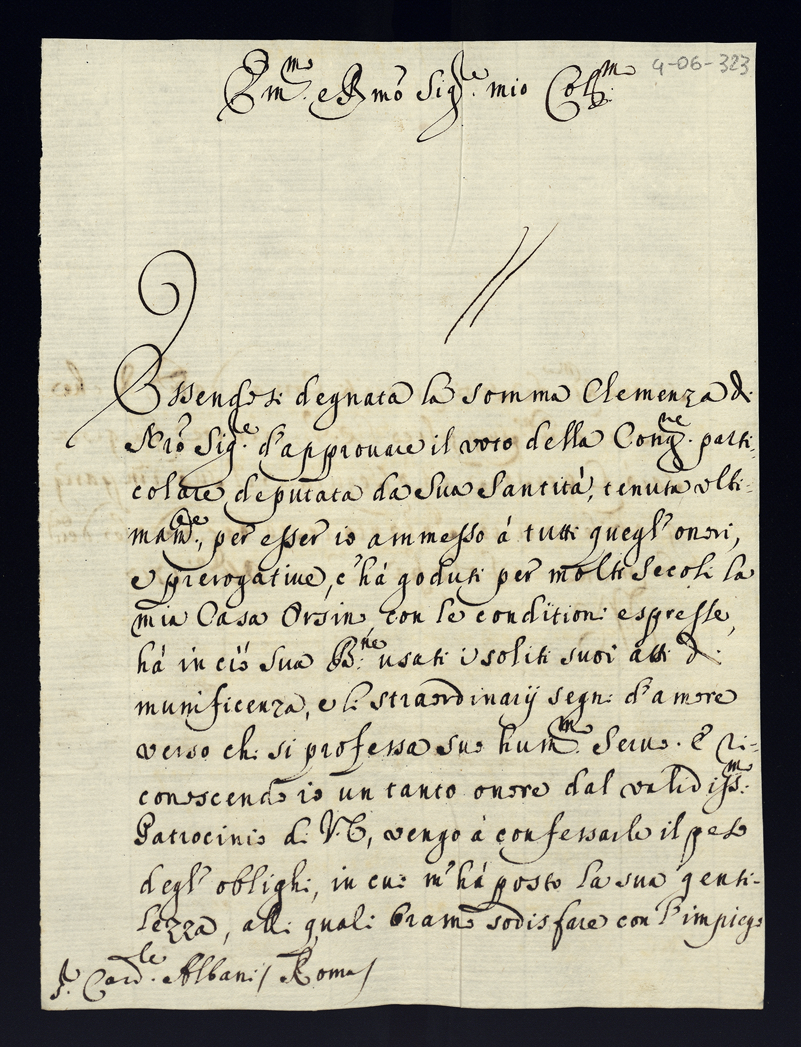 Em.mo e R.mo Sig.re mio Col.mo
9-06-323
Essendosi degnata la somma Clemenza di
N'ro Sig.re d'approuare il voto della Cong.ne parti-
colare deputata da Sua Santità, tenuta ulti-
mam.te, per esser io ammesso á tutti quegl'onori,
e prerogative, c'há goduti per molti secoli la
mia Casa Orsini, con le conditioni espresse,
há in ció Sua B.ne usati i soliti suoi atti di
munificenza, e li straordinarij segni d'amore
verso chi si professa suo hum.mo Seruo. E ri-
conoscendo io un tanto onore dal validiss.mo
Patrocinio di V.E, vengo á confessarle il peso
degl'oblighi, in cui m'há posto la sua genti-
lezza, alli quali bramo sodisfare con l'impiego
S.r Card.le Albani / Roma /